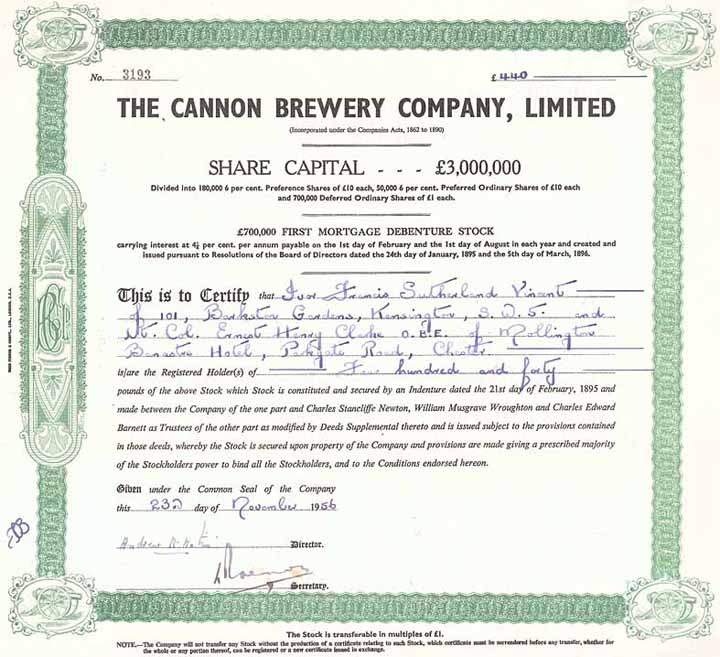 No. 3193 £ 440
THE CANNON BREWERY COMPANY, LIMITED
(Incorporated under the Companies Acts, 1862 to 1890)
SHARE CAPITAL - - - £3,000,000
Divided into 180,000 6 per cent. Preference Shares of £10 each, 50,000 6 per cent. Preferred Ordinary Shares of £10 each
and 700,000 Deferred Ordinary Shares of £1 each.
£700,000 FIRST MORTGAGE DEBENTURE STOCK
carrying interest at 4¼ per cent. per annum payable on the 1st day of February and the 1st day of August in each year and created and
issued pursuant to Resolutions of the Board of Directors dated the 24th day of January, 1895 and the 5th day of March, 1896.
This is to Certify that Ivor Francis Sutherland Vincent
of 101, Barkston Gardens, Kensington, S.W.5. and
Lt. Col. Ernest Henry Clarke O.B.E. of Mollington
Banastre Hotel, Parkgate Road, Chester
is/are the Registered Holder(s) of Four hundred and forty
pounds of the above Stock which Stock is constituted and secured by an Indenture dated the 21st day of February, 1895 and
made between the Company of the one part and Charles Stancliffe Newton, William Musgrave Wroughton and Charles Edward
Barnett as Trustees of the other part as modified by Deeds Supplemental thereto and is issued subject to the provisions contained
in those deeds, whereby the Stock is secured upon property of the Company and provisions are made giving a prescribed majority
of the Stockholders power to bind all the Stockholders, and to the Conditions endorsed hereon.
Given under the Common Seal of the Company
this 23rd day of November 1956
Director.
Secretary.
The Stock is transferable in multiples of £1.
NOTE.—The Company will not transfer any Stock without the production of a certificate relating to such Stock, which certificate must be surrendered before any transfer, whether for
the whole or any portion thereof, can be registered or a new certificate issued in exchange.